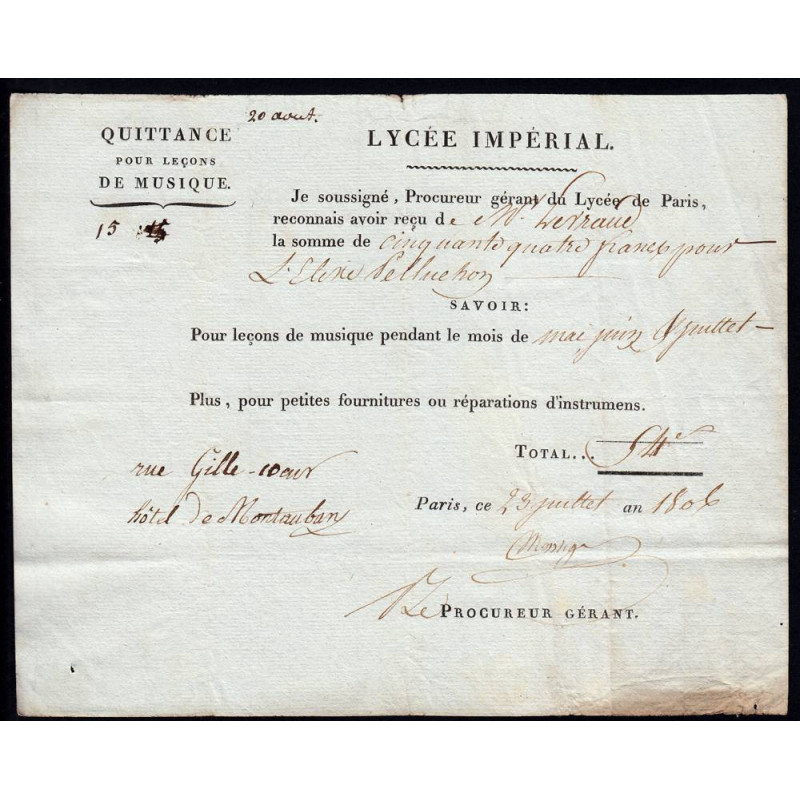 20 aout.
QUITTANCE
POUR LEÇONS
DE MUSIQUE.
15
LYCÉE IMPÉRIAL.
Je soussigné, Procureur gérant du Lycée de Paris,
reconnais avoir reçu de Mr.
la somme de cinquante quatre francs pour
L'Eleve Pelluchon
SAVOIR:
Pour leçons de musique pendant le mois de mai juin & juillet
Plus, pour petites fournitures ou réparations d'instrumens.
TOTAL... 54
rue Gille-cœur
hôtel de Montauban
Paris, ce 23 juillet an 1806
Le PROCUREUR GÉRANT.